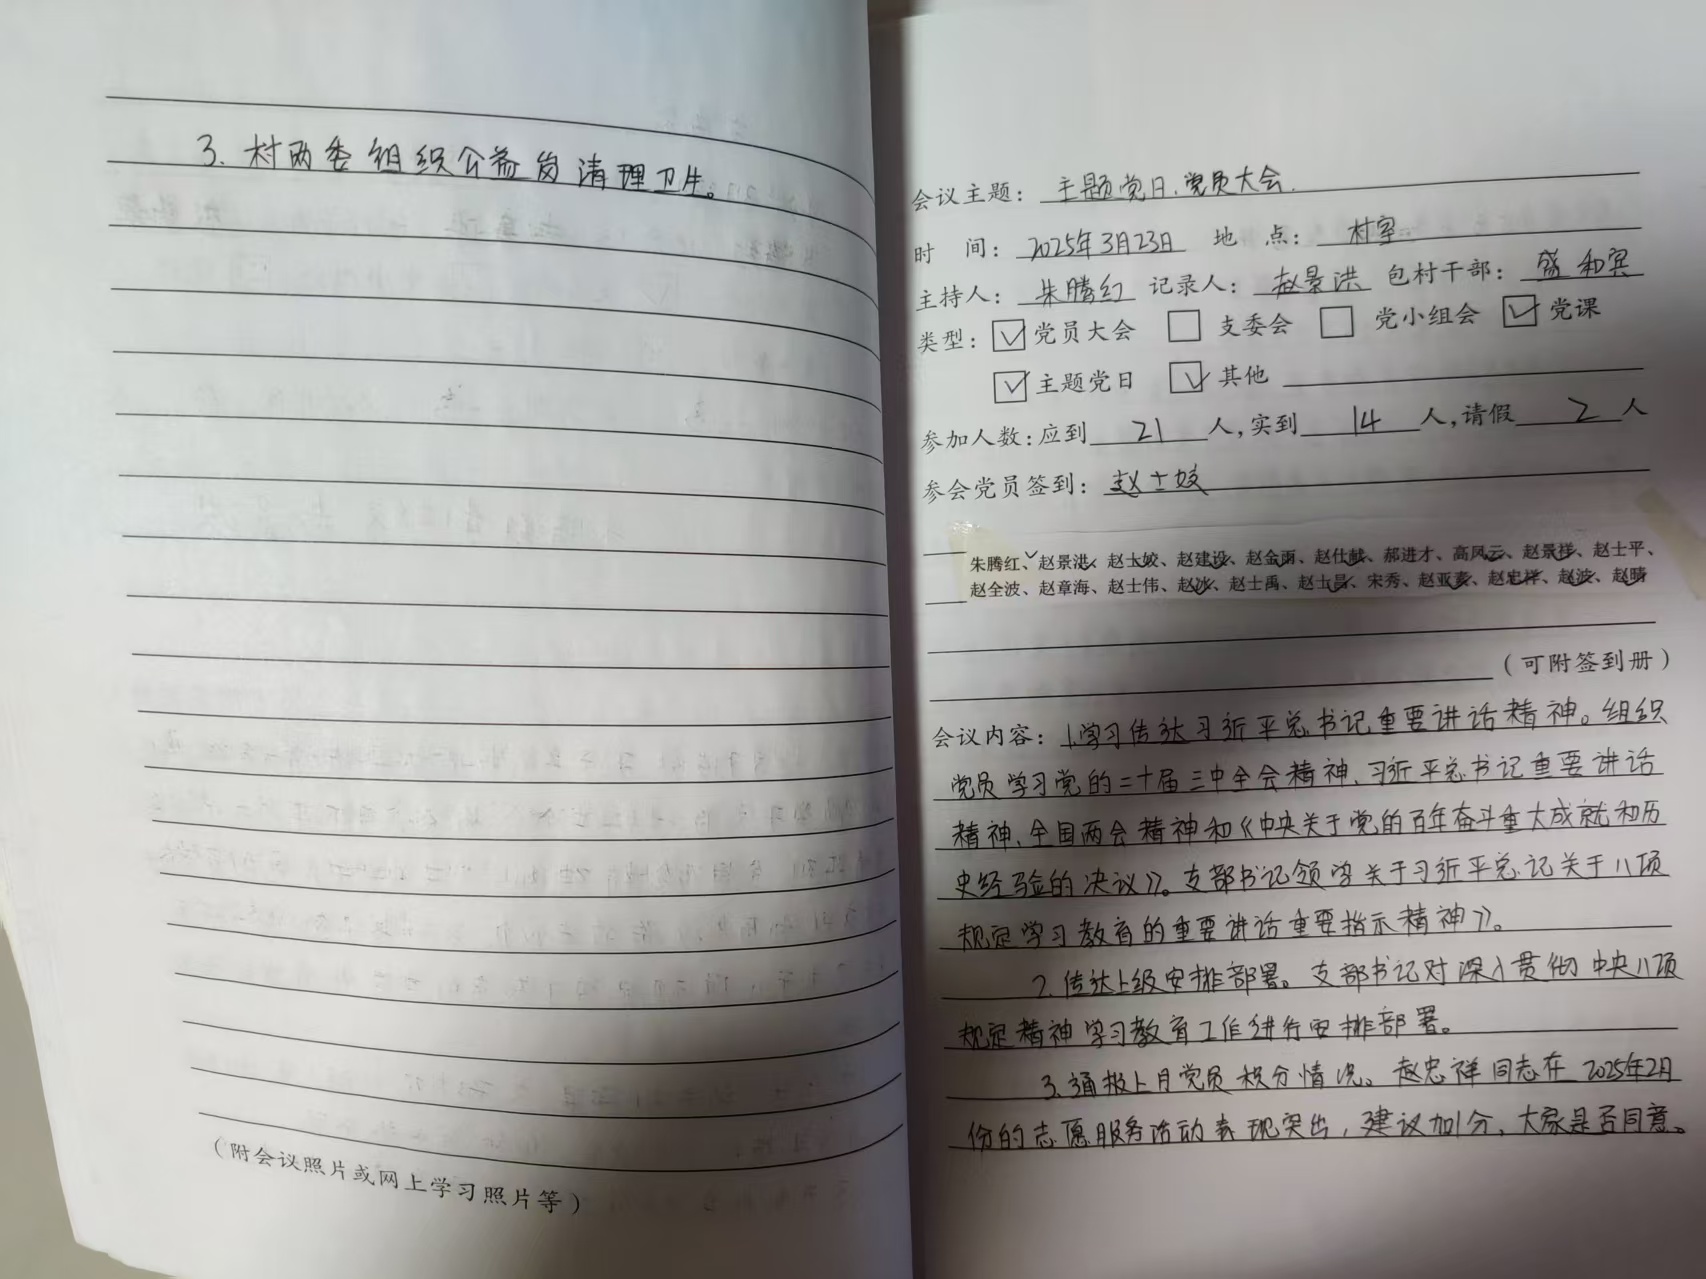 3. 村两委组织公益岗清理卫生。
（附会议照片或网上学习照片等）
会议主题： 主题党日、党员大会.
时 间： 2025年3月23日 地 点： 村室
主持人： 朱腾红 记录人： 赵景洪 包村干部： 盛和宾
类型： ☑ 党员大会 □ 支委会 □ 党小组会 ☑ 党课
☑ 主题党日 ☑ 其他
参加人数：应到 21 人，实到 14 人，请假 2 人
参会党员签到： 赵士姣
朱腾红、赵景洪、赵士姣、赵建设、赵金雨、赵仕献、郝进才、高凤云、赵景祥、赵士平、
赵全波、赵章海、赵士伟、赵冰、赵士禹、赵士昌、宋秀、赵亚素、赵忠祥、赵波、赵晴
（可附签到册）
会议内容： 1.学习传达习近平总书记重要讲话精神。组织
党员学习党的二十届三中全会精神、习近平总书记重要讲话
精神、全国两会精神和《中央关于党的百年奋斗重大成就和历
史经验的决议》。支部书记领学关于习近平总记关于八项
规定学习教育的重要讲话重要指示精神》。
2. 传达上级安排部署。支部书记对深入贯彻中央八项
规定精神学习教育工作进行安排部署。
3.通报上月党员积分情况。赵忠祥同志在2025年2月
份的志愿服务活动表现突出，建议加1分，大家是否同意。